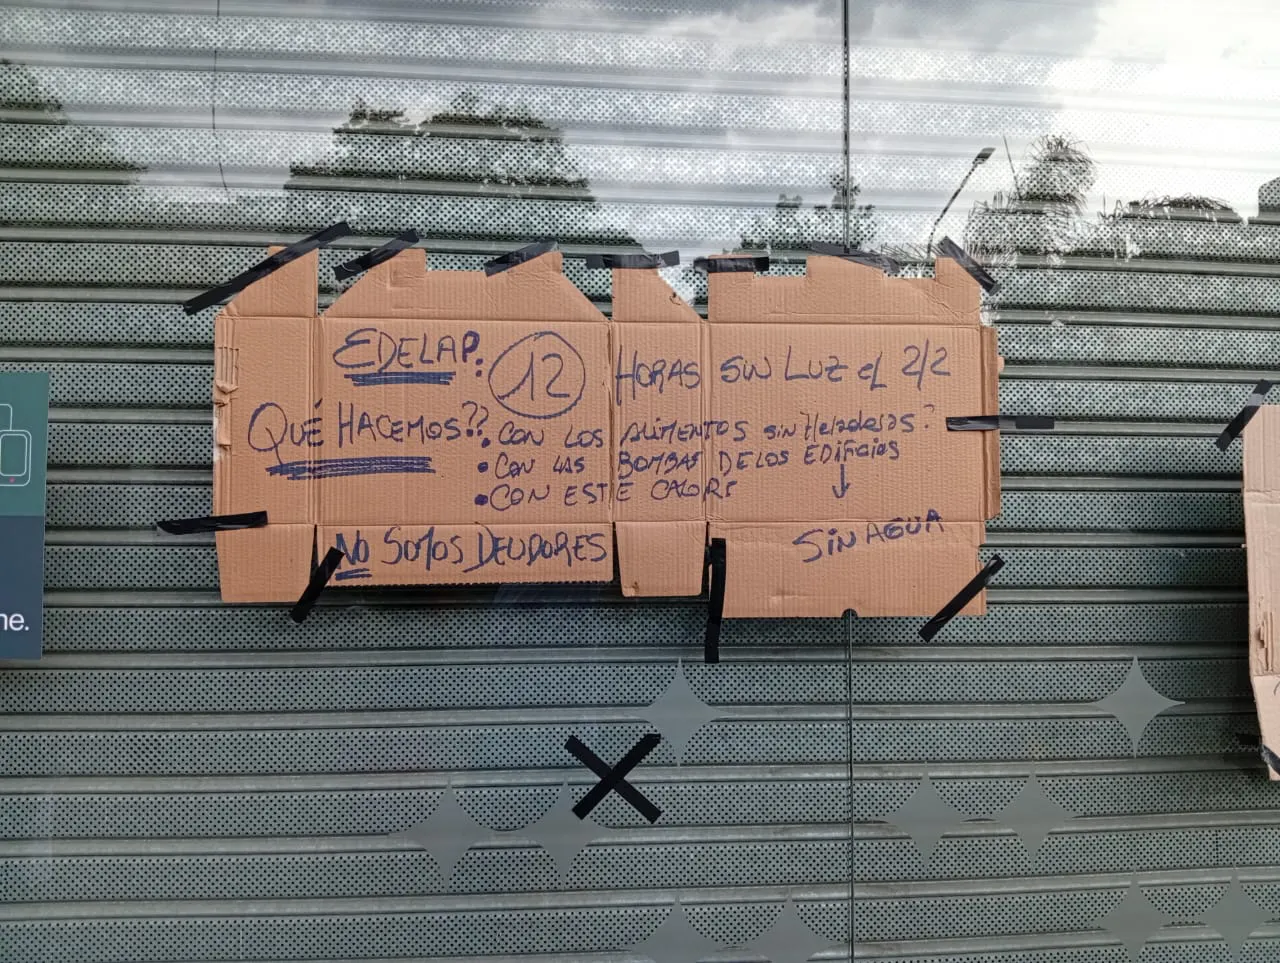 EDELAP: 12 HORAS SIN LUZ el 2/2
QUÉ HACEMOS??
• CON LOS ALIMENTOS sin Heladeras?
• CON LAS BOMBAS DE LOS EDIFICIOS
↓
SIN AGUA
• CON ESTE CALOR?
NO SOMOS DEUDORES
ne.